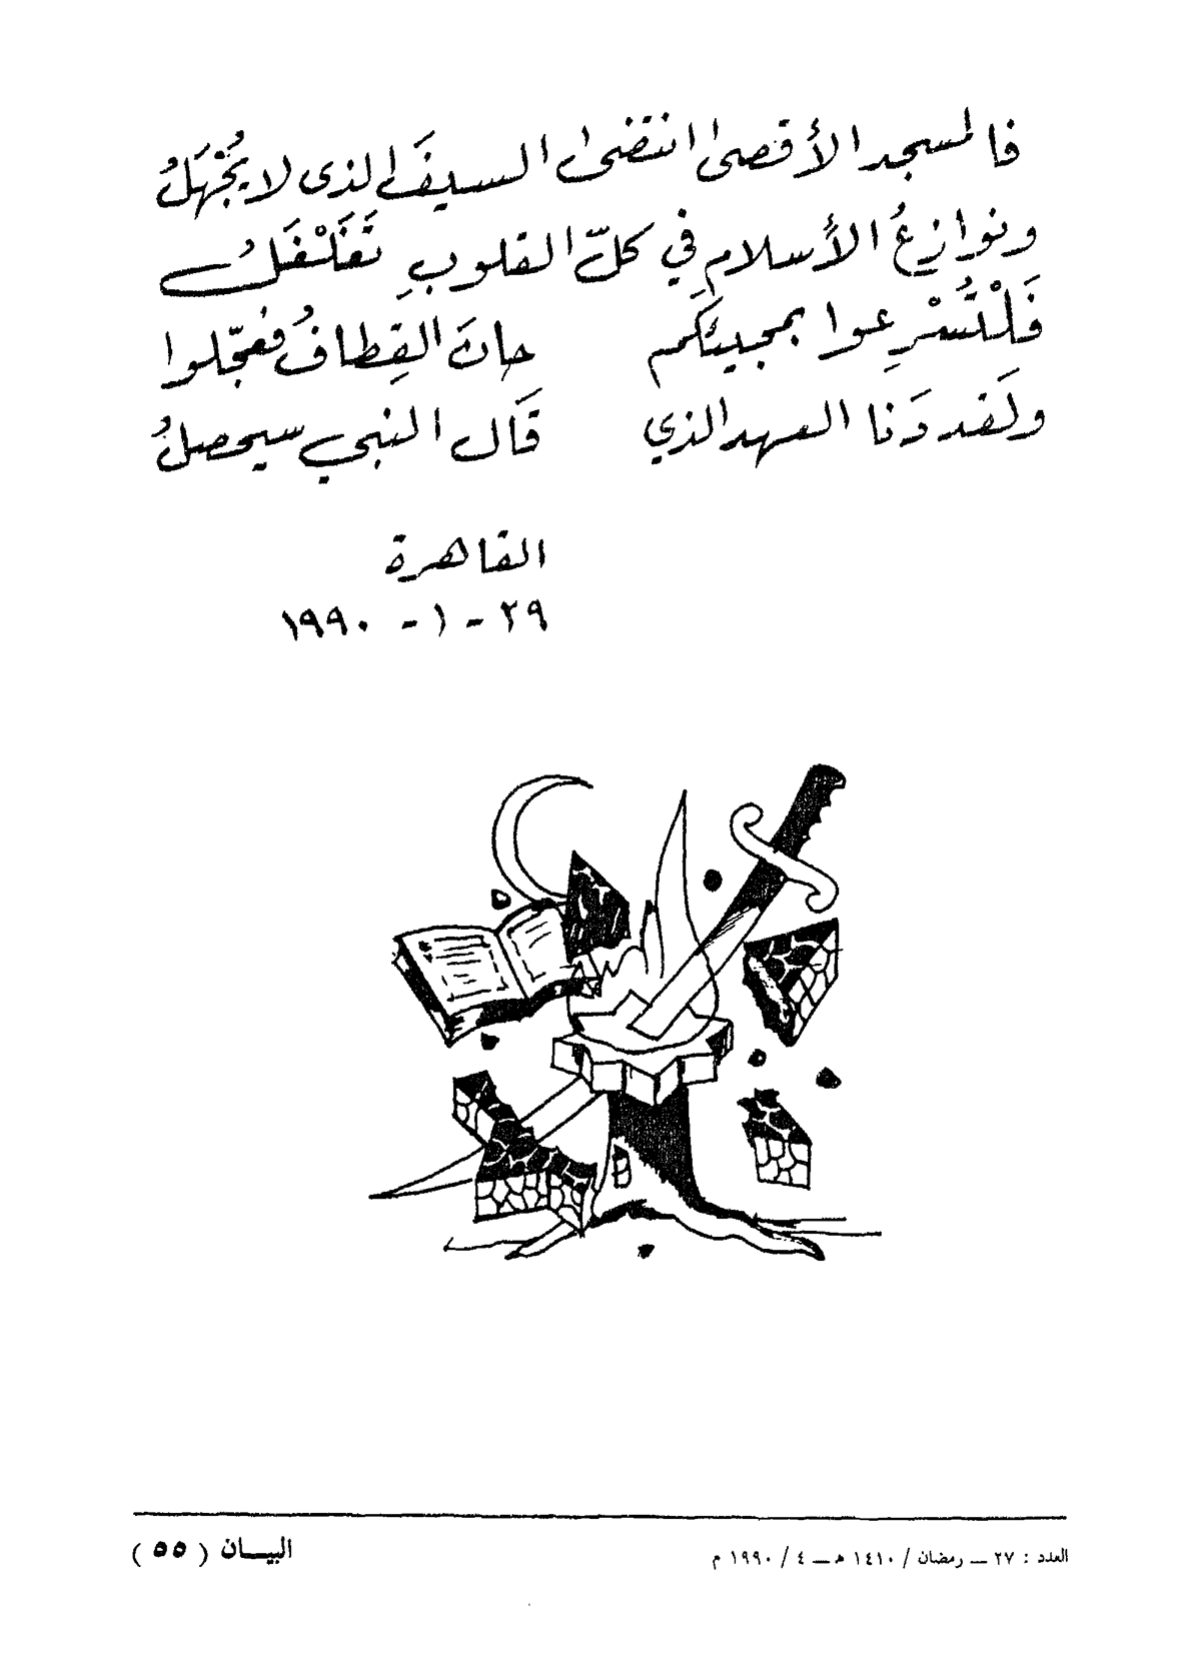 فالمسجد الأقصى انتضى السيفَ الذى لا يُجْهَلُ
ونوازعُ الأسلامِ في كلّ القلوبِ تَغَلْغَلُ
فَلْتُسْرِعوا بمجيئكم حانَ القِطافُ فعجّلوا
ولَقد دَنا العهد الذي قَال النبي سيحصلُ
القاهرة
٢٩ - ١ - ١٩٩٠
العدد : ٢٧ ــ رمضان / ١٤١٠ هـ ــ ٤ / ١٩٩٠ م
البيـــان ( ٥٥ )